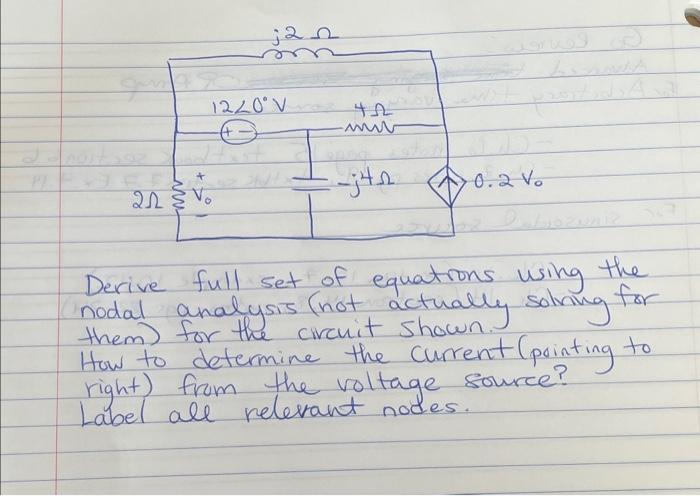 j2 Ω
12∠0° V
4Ω
+ -
2Ω
+
Vo
-
-j4Ω
0.2 Vo
Derive full set of equations using the
nodal analysis (not actually solving for
them) for the circuit shown.
How to determine the current (pointing to
right) from the voltage source?
Label all relevant nodes.